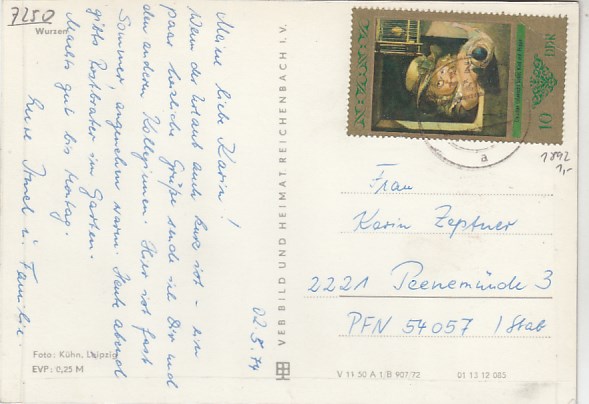 7250
Wurzen
Meine liebe Karin!
Wenn der Urlaub auch kurz ist – ein
paar herzliche Grüße sende ich Dir und
den anderen Kolleginnen. Hier ist fast
Sommer, angenehm warm. Heute abend
gibts Rostbrater im Garten.
Machts gut bis Montag.
Eure u. Familie.
02.5.74
Foto: Kühn, Leipzig
EVP: 0,25 M
VEB BILD UND HEIMAT REICHENBACH I. V.
DDR
10
a
1892
1,-
Frau
Karin Zeptner
2221 Peenemünde 3
PFN 54057 / Stab
V 11 50 A 1/B 907/72 01 13 12 085